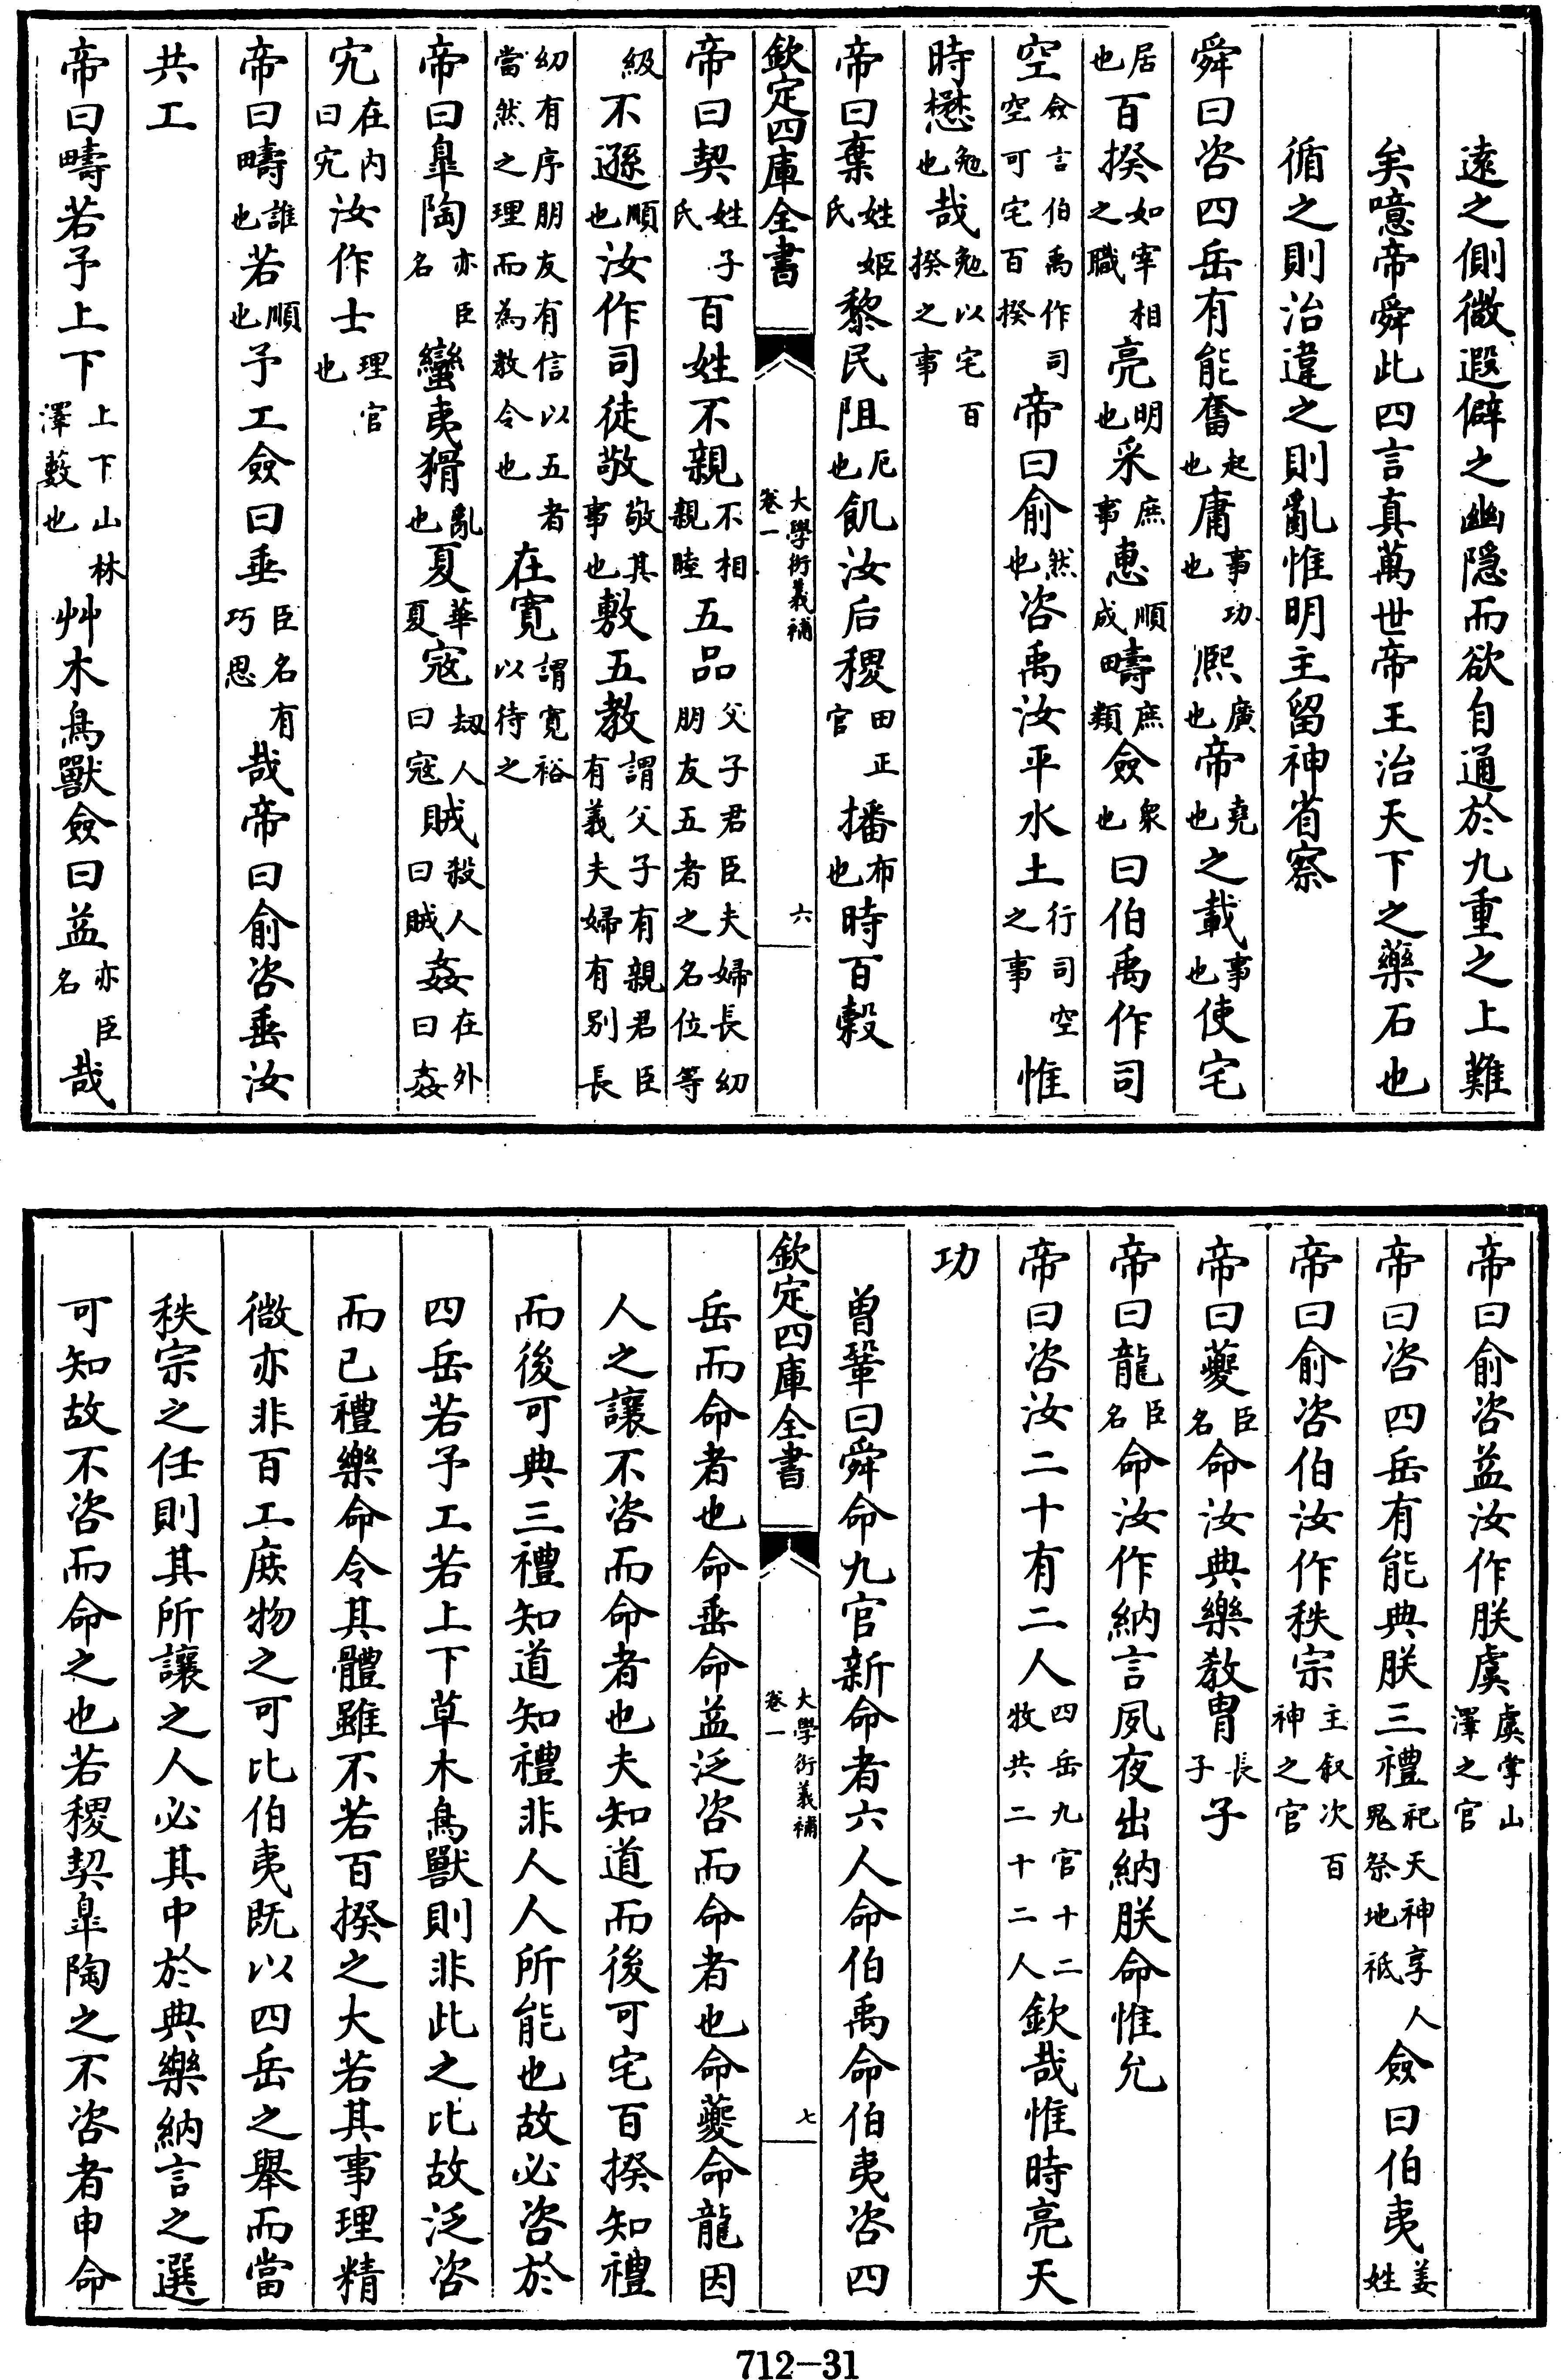 遠之側微遐僻之幽隱而欲自通於九重之上難
矣噫帝舜此四言真萬世帝王治天下之藥石也
循之則治違之則亂惟明主留神省察
舜曰咨四岳有能奮起也庸事功也熙廣也帝堯也之載事也使宅
居也百揆如宰相之職亮明也采庶事惠順成疇庶類僉衆也曰伯禹作司
空僉言伯禹作司空可宅百揆帝曰俞然也咨禹汝平水土行司空之事惟
時懋勉也哉勉以宅百揆之事
帝曰棄姓姬氏黎民阻厄也飢汝后稷田正官播布也時百穀
欽定四庫全書 大學衍義補 卷一 六
帝曰契姓子氏百姓不親不相親睦五品父子君臣夫婦長幼朋友五者之名位等
級不遜順也汝作司徒敬敬其事也敷五教謂父子有親君臣有義夫婦有別長
幼有序朋友有信以五者當然之理而為教令也在寬謂寬裕以待之
帝曰臯陶亦臣名蠻夷猾亂也夏華夏寇劫人曰寇賊殺人曰賊姦在外曰姦
宄在內曰宄汝作士理官也
帝曰疇誰也若順也予工僉曰垂臣名有巧思哉帝曰俞咨垂汝
共工
帝曰疇若予上下上下山林澤藪也艸木鳥獸僉曰益亦臣名哉
帝曰俞咨益汝作朕虞虞掌山澤之官
帝曰咨四岳有能典朕三禮祀天神享人鬼祭地祗僉曰伯夷姜姓
帝曰俞咨伯汝作秩宗主叙次百神之官
帝曰夔臣名命汝典樂教胄長子子
帝曰龍臣名命汝作納言夙夜出納朕命惟允
帝曰咨汝二十有二人四岳九官十二牧共二十二人欽哉惟時亮天
功
曾鞏曰舜命九官新命者六人命伯禹命伯夷咨四
欽定四庫全書 大學衍義補 卷一 七
岳而命者也命垂命益泛咨而命者也命夔命龍因
人之讓不咨而命者也夫知道而後可宅百揆知禮
而後可典三禮知道知禮非人人所能也故必咨於
四岳若予工若上下草木鳥獸則非此之比故泛咨
而已禮樂命令其體雖不若百揆之大若其事理精
微亦非百工庶物之可比伯夷既以四岳之舉而當
秩宗之任則其所讓之人必其中於典樂納言之選
可知故不咨而命之也若稷契臯陶之不咨者申命
712-31